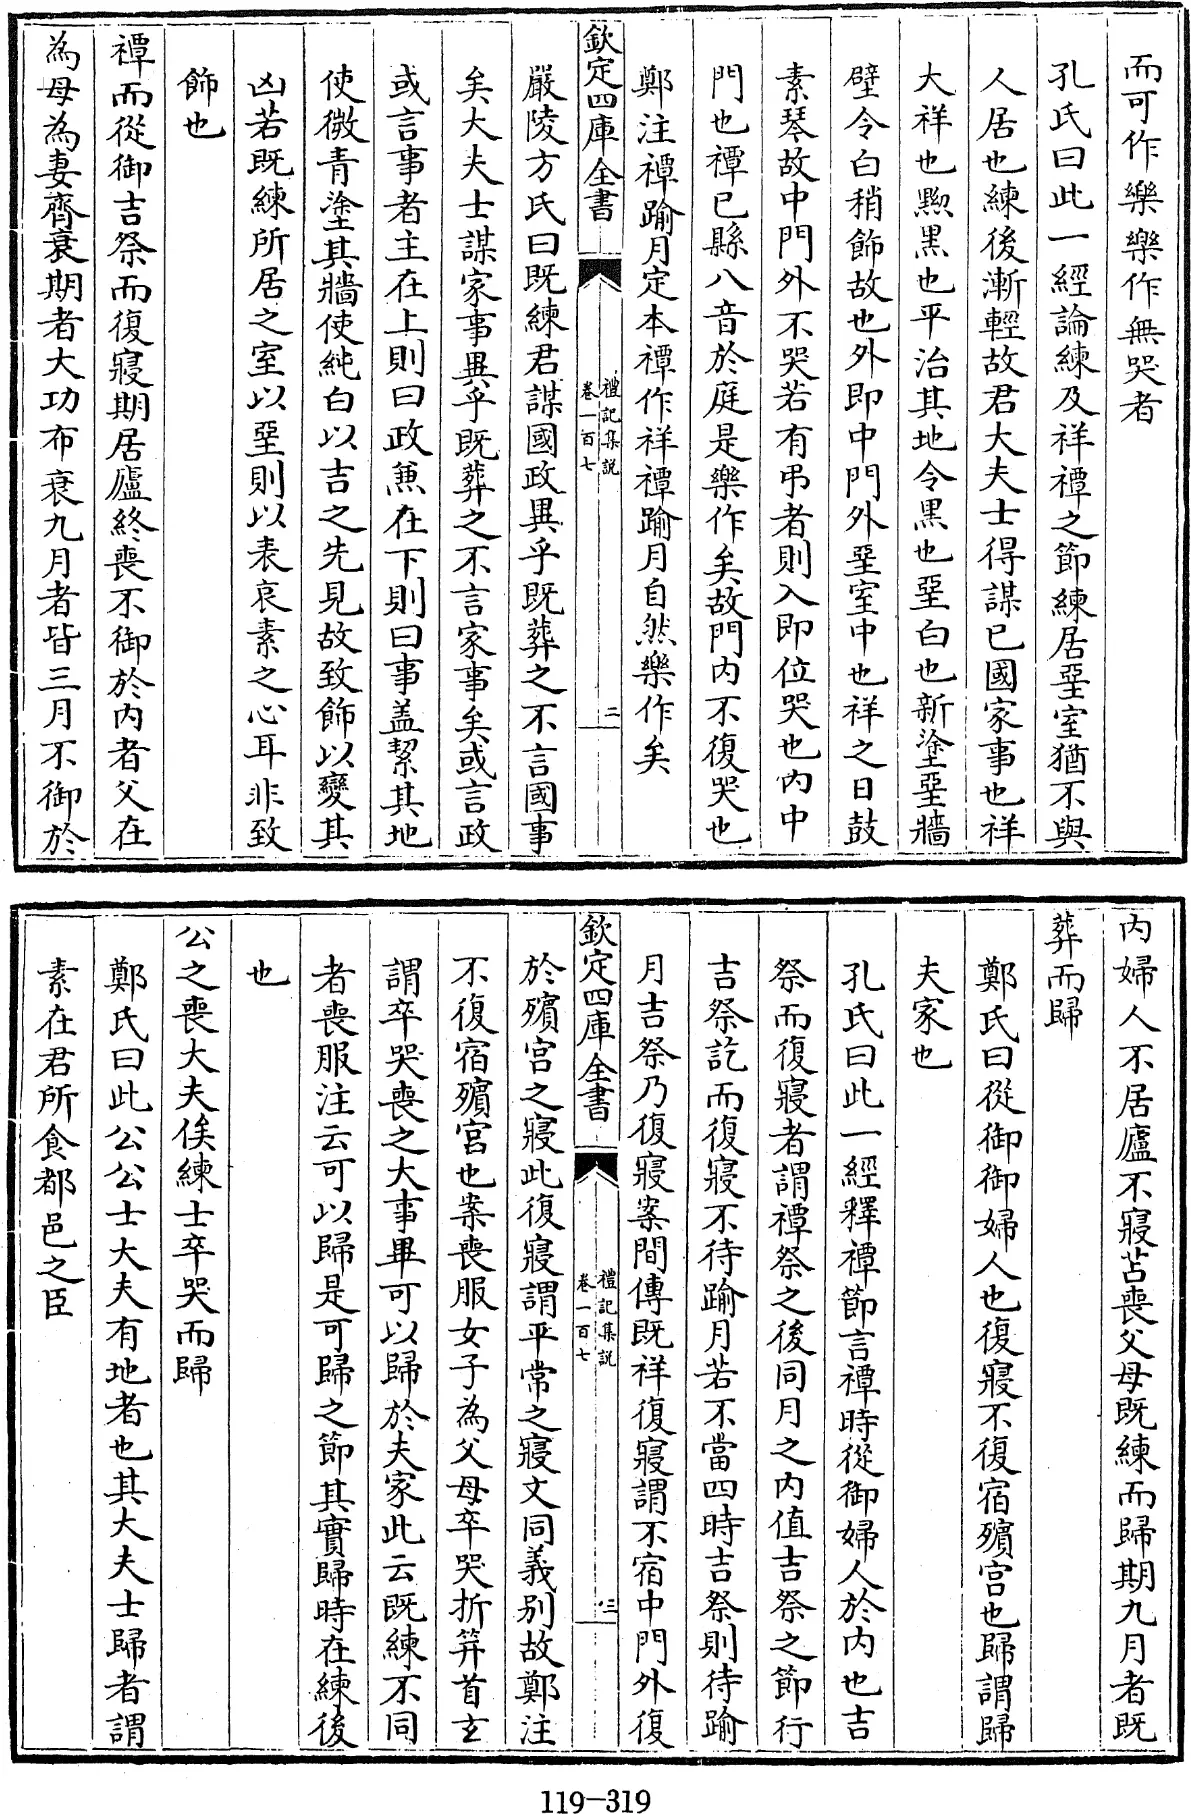 而可作樂樂作無哭者
孔氏曰此一經論練及祥禫之節練居堊室猶不與
人居也練後漸輕故君大夫士得謀已國家事也祥
大祥也黝黒也平治其地令黒也堊白也新塗堊牆
壁令白稍飾故也外即中門外堊室中也祥之日鼓
素琴故中門外不哭若有弔者則入即位哭也内中
門也禫已縣八音於庭是樂作矣故門内不復哭也
鄭注禫踰月定本禫作祥禫踰月自然樂作矣
欽定四庫全書
禮記集説
卷一百七
二
嚴陵方氏曰既練君謀國政異乎既葬之不言國事
矣大夫士謀家事異乎既葬之不言家事矣或言政
或言事者主在上則曰政兼在下則曰事盖絜其地
使微青塗其牆使純白以吉之先見故致飾以變其
凶若既練所居之室以堊則以表哀素之心耳非致
飾也
禫而從御吉祭而復寢期居廬終喪不御於内者父在
為母為妻齊衰期者大功布衰九月者皆三月不御於
内婦人不居廬不寢苫喪父母既練而歸期九月者既
葬而歸
鄭氏曰從御御婦人也復寢不復宿殯宫也歸謂歸
夫家也
孔氏曰此一經釋禫節言禫時從御婦人於内也吉
祭而復寢者謂禫祭之後同月之内值吉祭之節行
吉祭訖而復寢不待踰月若不當四時吉祭則待踰
月吉祭乃復寢案間傳既祥復寢謂不宿中門外復
欽定四庫全書
禮記集説
卷一百七
三
於殯宫之寢此復寢謂平常之寢文同義别故鄭注
不復宿殯宫也案喪服女子為父母卒哭折笄首玄
謂卒哭喪之大事畢可以歸於夫家此云既練不同
者喪服注云可以歸是可歸之節其實歸時在練後
也
公之喪大夫俟練士卒哭而歸
鄭氏曰此公公士大夫有地者也其大夫士歸者謂
素在君所食都邑之臣
119-319